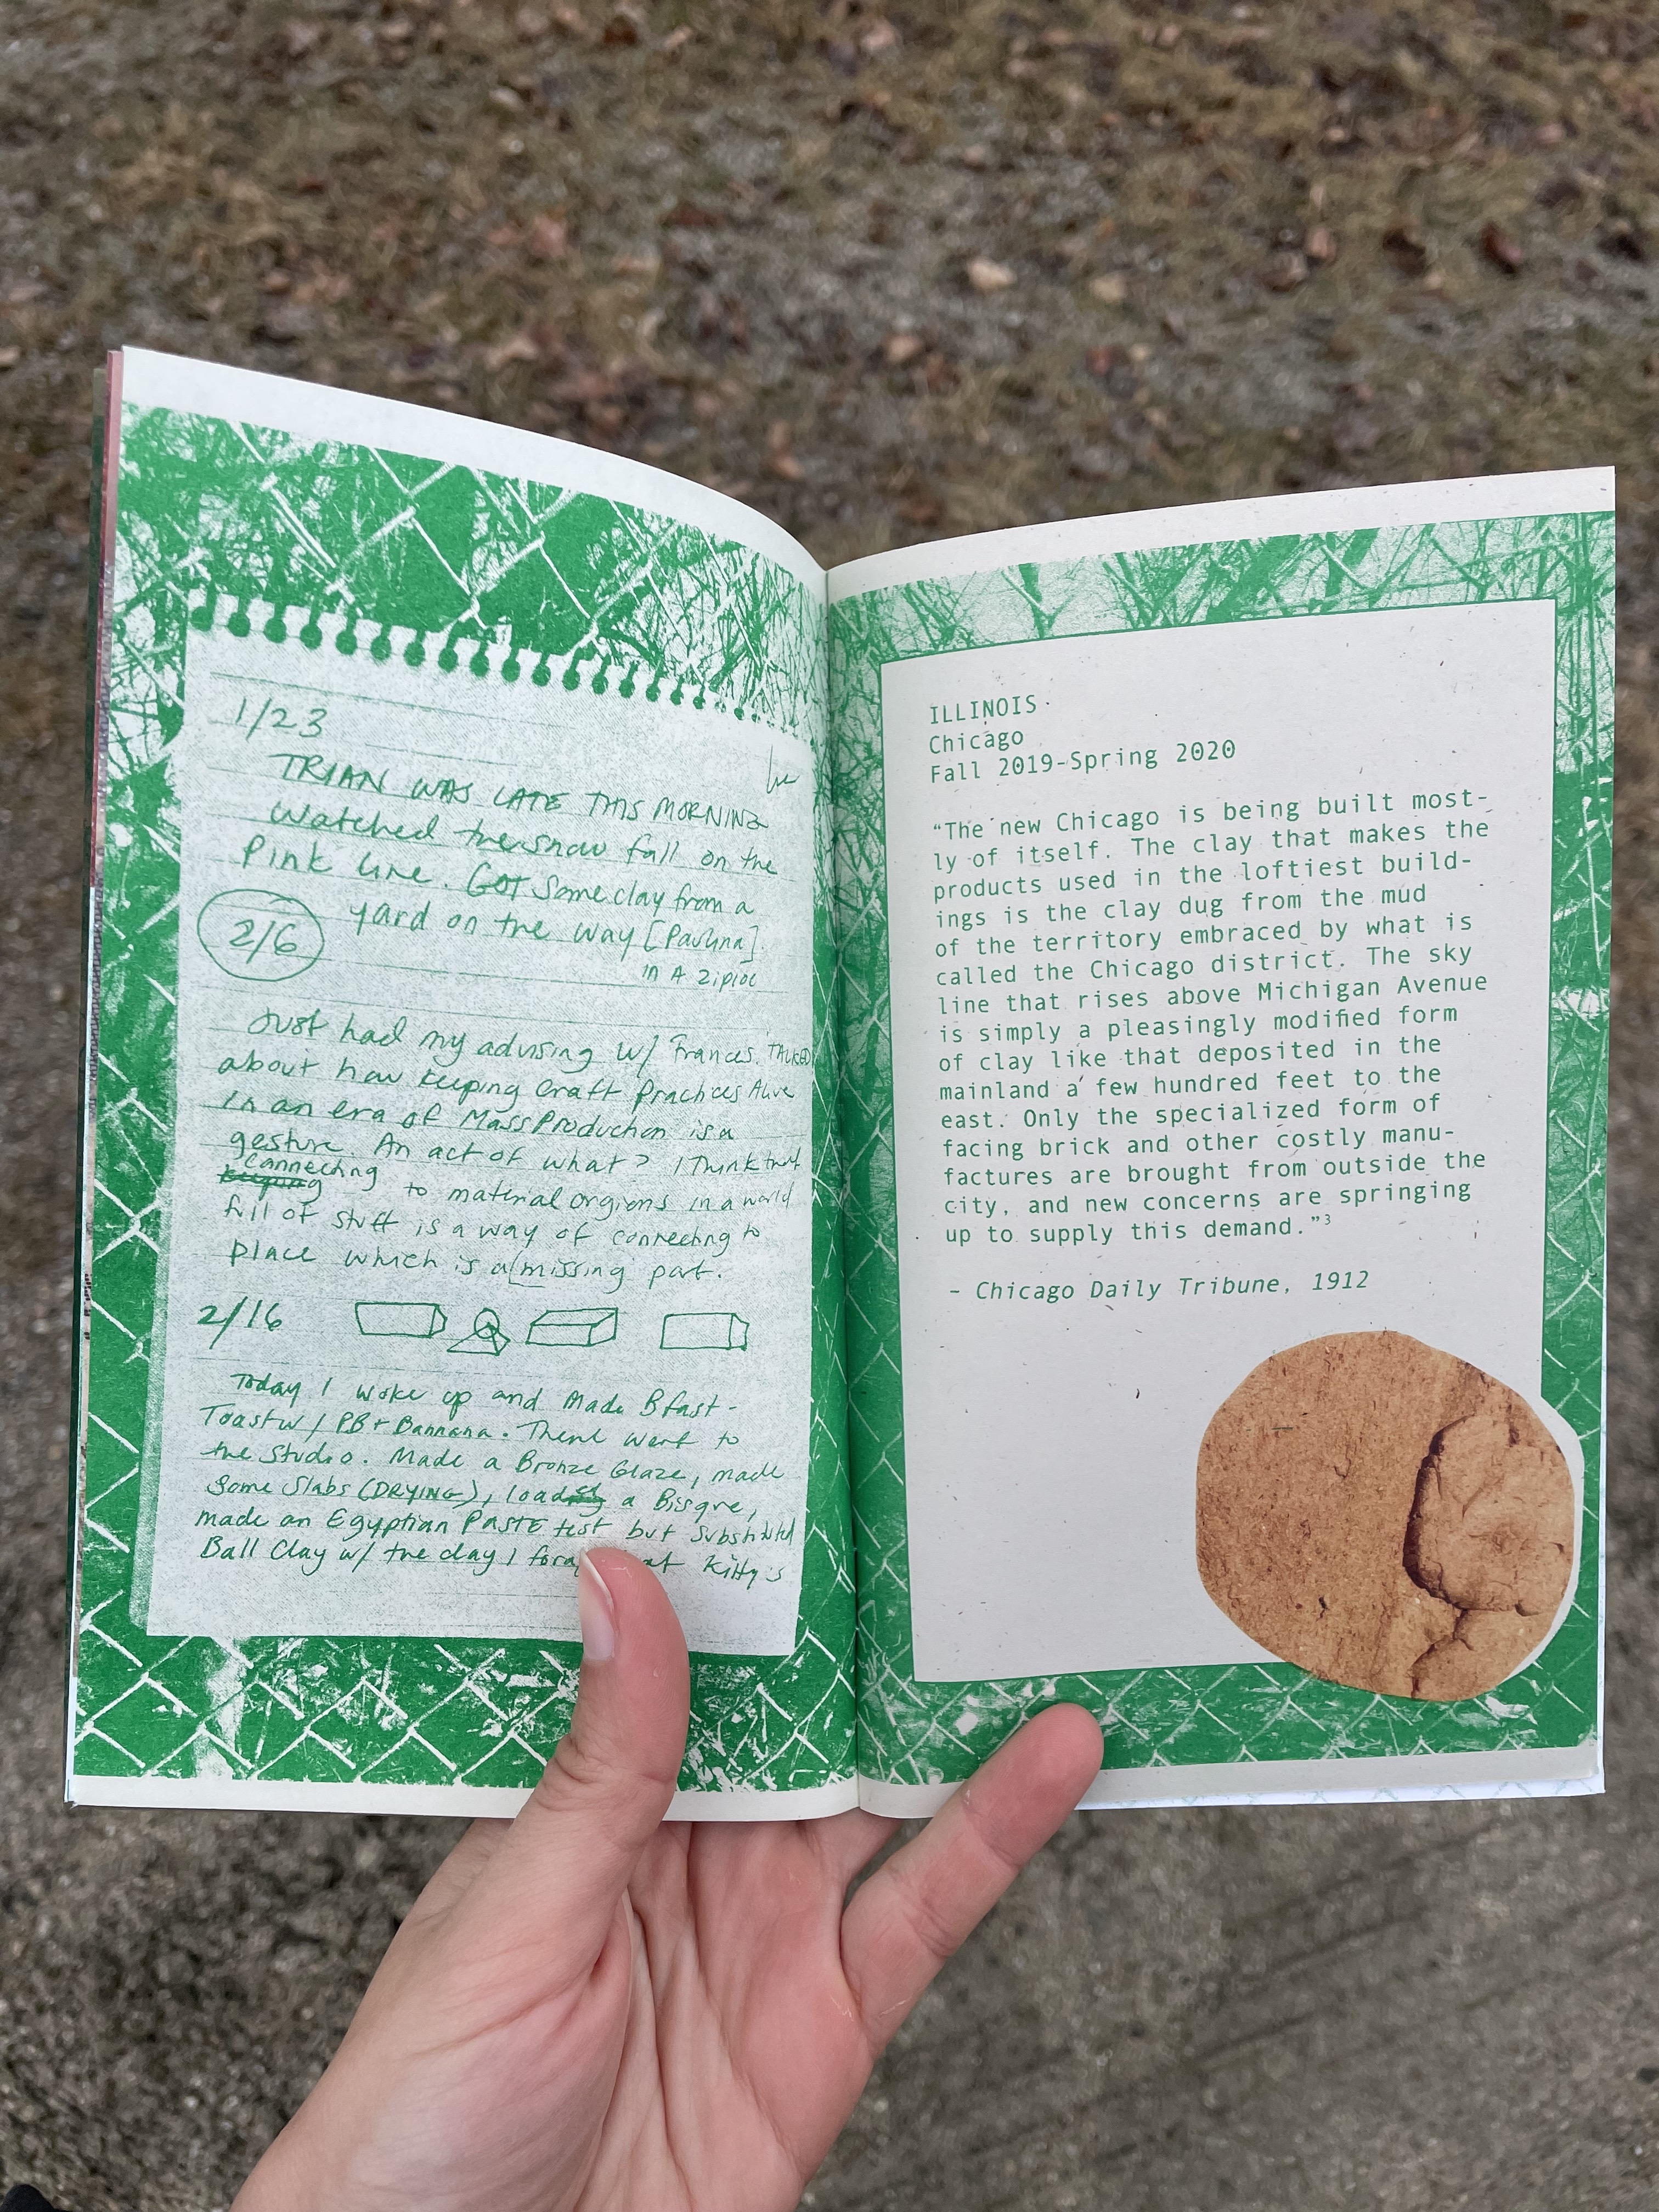 1/23
TRIAN WAS LATE THIS MORNING
Watched the snow fall on the
Pink Line. GOT Some clay from a
yard on the way [Paulina].
in A Ziploc
2/6
Just had my advising w/ Frances. TALKED
about how keeping Craft Practices Alive
in an era of Mass Production is a
gesture. An act of what? I Think that
connecting
to material orgions in a world
full of stuff is a way of connecting to
place which is a missing part.
2/16
Today I woke up and Made Bfast-
Toast w/ PB + Bannana. Then I went to
the Studio. Made a Bronze Glaze, made
Some Slabs (DRYING), load a Bisqre,
made an Egyptian PASTE test but Substituted
Ball Clay w/ the clay I at Kitty's
ILLINOIS
Chicago
Fall 2019-Spring 2020
“The new Chicago is being built most-
ly of itself. The clay that makes the
products used in the loftiest build-
ings is the clay dug from the mud
of the territory embraced by what is
called the Chicago district. The sky
line that rises above Michigan Avenue
is simply a pleasingly modified form
of clay like that deposited in the
mainland a few hundred feet to the
east. Only the specialized form of
facing brick and other costly manu-
factures are brought from outside the
city, and new concerns are springing
up to supply this demand.”³
– Chicago Daily Tribune, 1912